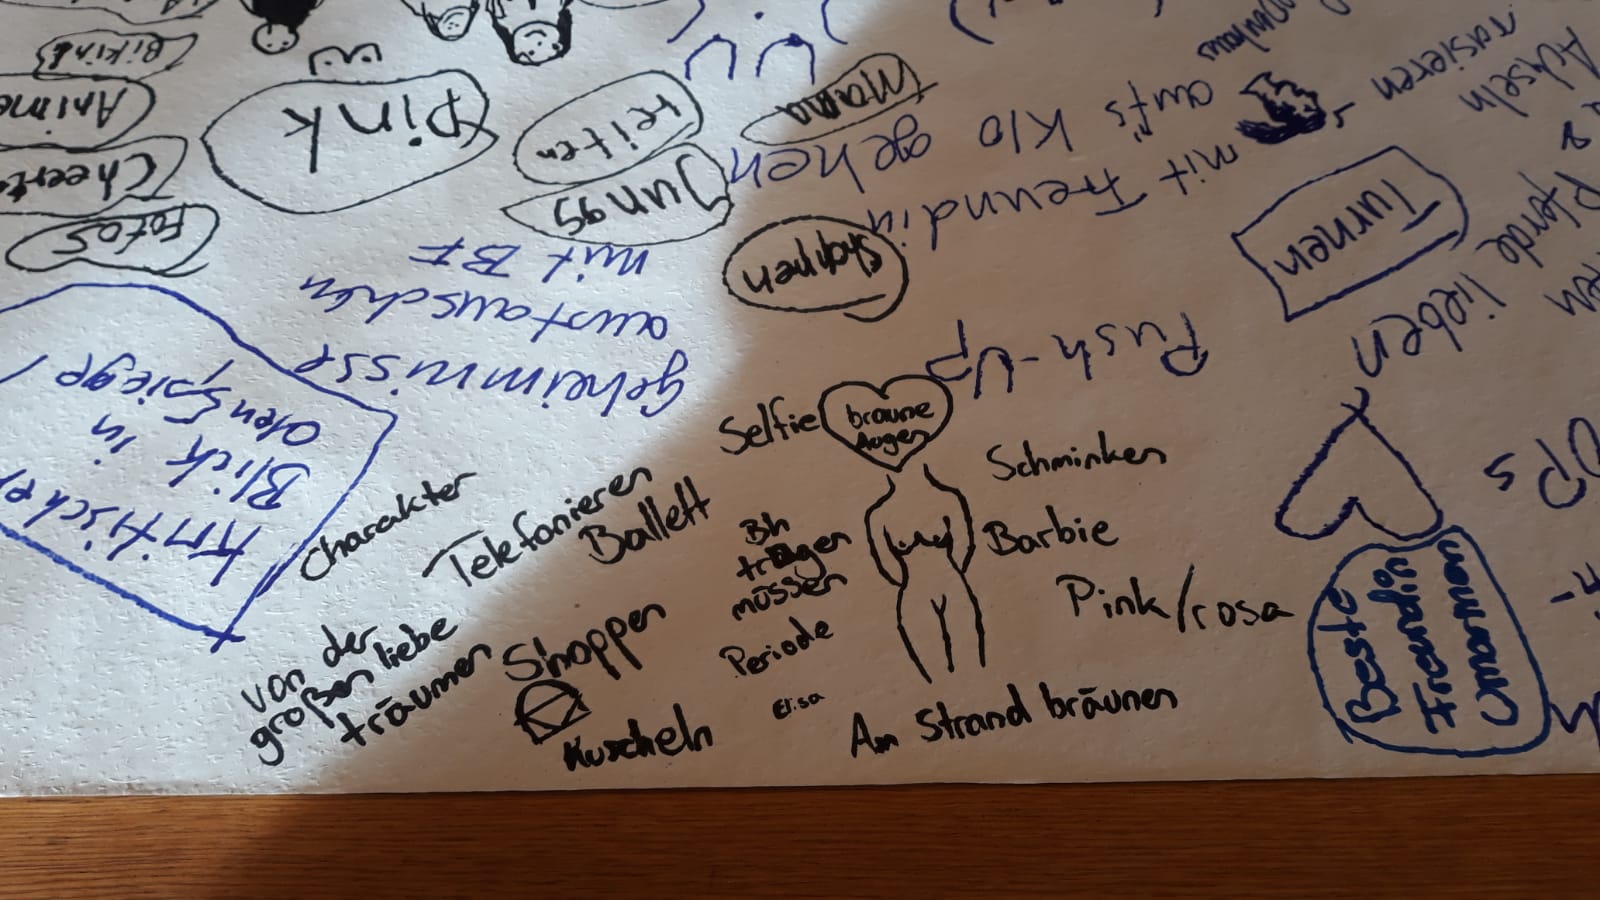 Selfie
braune
Augen
Schminken
Charakter
Telefonieren
Ballett
Bh
tragen
müssen
Barbie
Pink/rosa
von der
großen liebe
träumen
Shoppen
Periode
Elisa
Kuscheln
Am Strand bräunen
Beste
Freundin
Push-Up
lieben
Pferde
Turnen
Achseln
rasieren
mit Freundin
aufs Klo gehen
shoppen
Mama
Jungs
reiten
Pink
Bikini
Anime
Fotos
geheimnisse
austauschen
mit BF
Kritischer
Blick in
den Spiegel
OPs